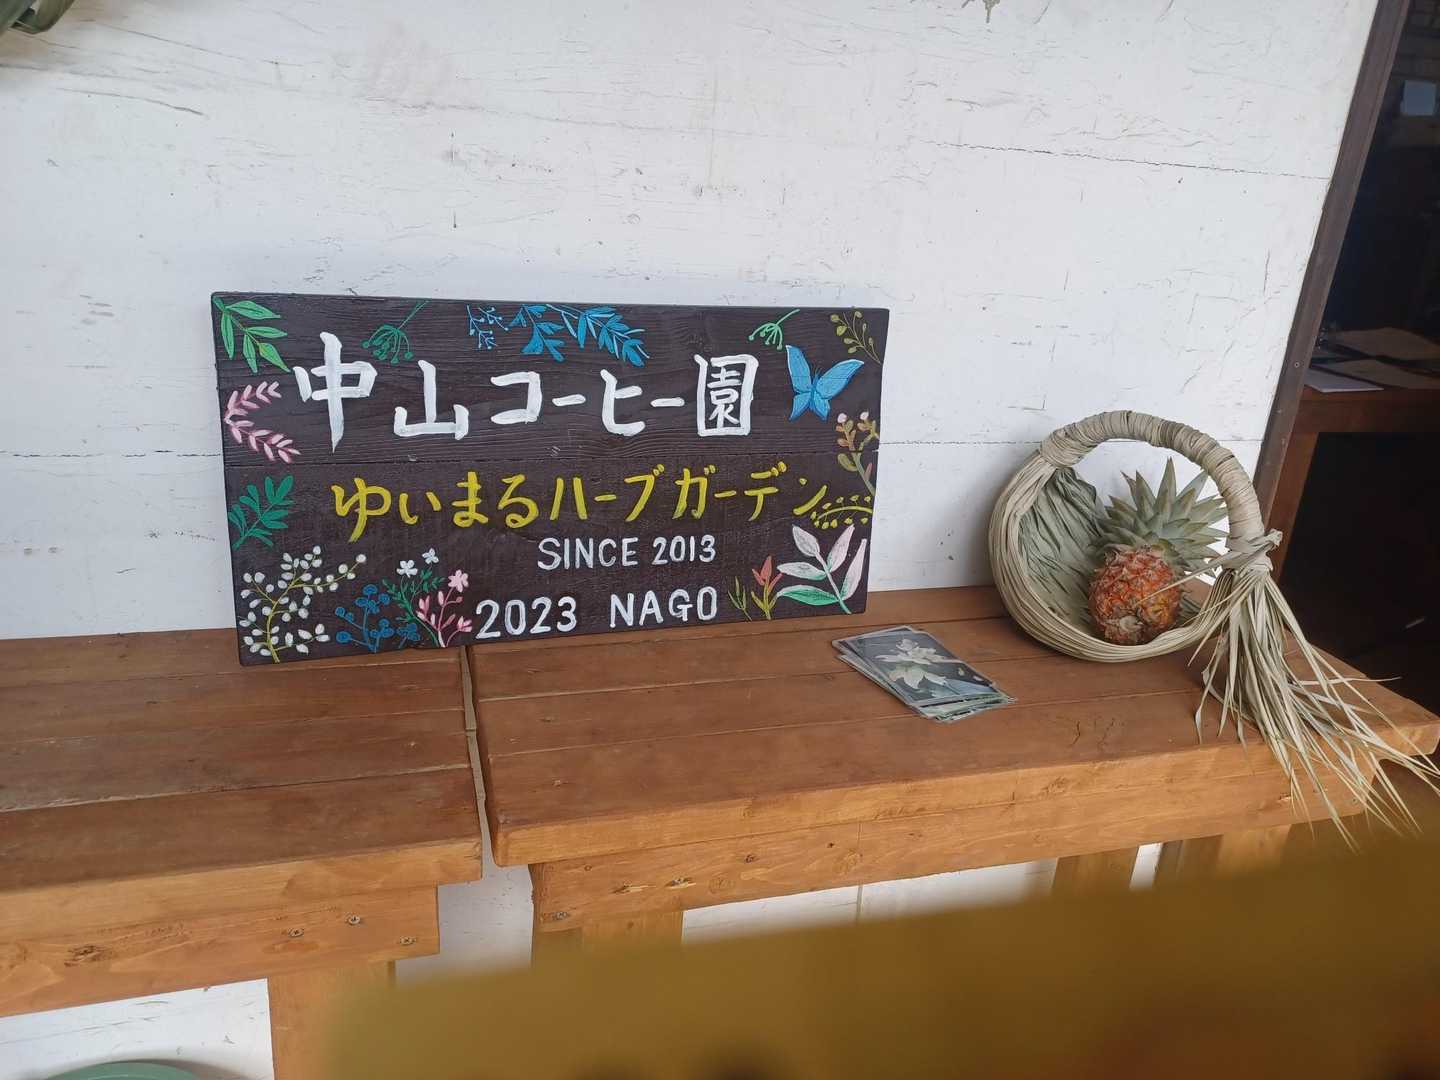 中山コーヒー園
ゆいまるハーブガーデン
SINCE 2013
2023 NAGO